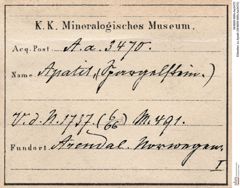 K. K. Mineralogisches Museum.
Acq. Post A. a. 3470.
Name Apatit, (Spargelstein.)
V. d. N. 1737. M. 491.
Fundort Arendal. Norwegen.
I